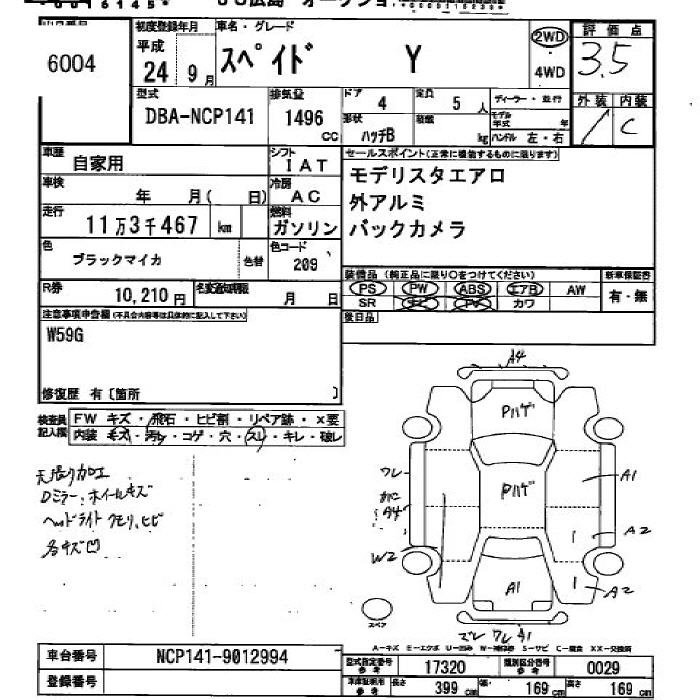 6004
初度登録年月
平成
24年 9月
車名・グレード
スペイド Y
2WD
4WD
評価点
3.5
外装 内装
C
型式
DBA-NCP141
排気量
1496
CC
ドア 4
定員 5人
形状 ハッチB
積載 kg
ディーラー・並行
モデル年式 年
ハンドル 左・右
車歴 自家用
シフト IAT
車検 年 月( 日)
冷房 AC
走行 11万3千467 km
燃料 ガソリン
色 ブラックマイカ 色替
色コード 209
R券 10,210円
名変期限 月 日
セールスポイント(正常に機能するものに限ります)
モデリスタエアロ
外アルミ
バックカメラ
装備品(純正品に限り○をつけてください)
新車保証書
PS PW ABS エアB AW
SR ナビ TV カワ
有・無
後日品
注意事項申告欄(不具合内容等は具体的に記入して下さい)
W59G
修復歴 有〔箇所 〕
検査員記入欄
FW キズ・飛石・ヒビ割・リペア跡・X要
内装 キズ・汚れ・コゲ・穴・スレ・キレ・破レ
天張り加工
Dミラー、ホイールキズ
ヘッドライト クモリ、ヒビ
各キズ凹
A4
Pハゲ
Pハゲ
ワレ
A4
W2
A1
A2
A2
A1
ズレ ワレ A1
スペア
A-キズ E-エクボ U-凹み W-補修跡 S-サビ C-腐食 XX-交換済
車台番号 NCP141-9012994
登録番号
型式指定番号 参考 17320
類別区分番号 参考 0029
車庫証明用 参考 長さ 399cm 幅 169cm 高さ 169cm